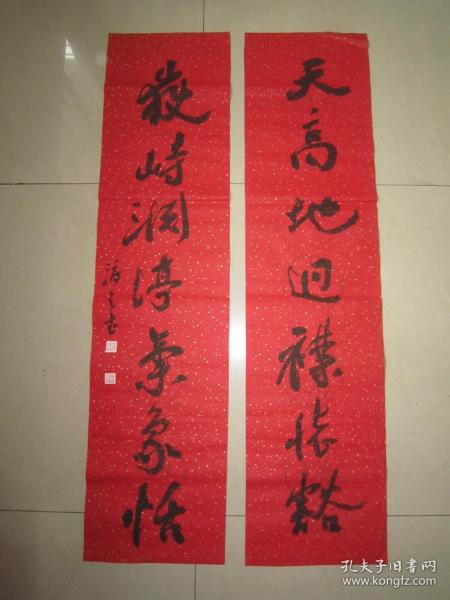 天高地迥襟怀豁
岳峙渊渟气象恬
孔夫子旧书网
www.kongfz.com